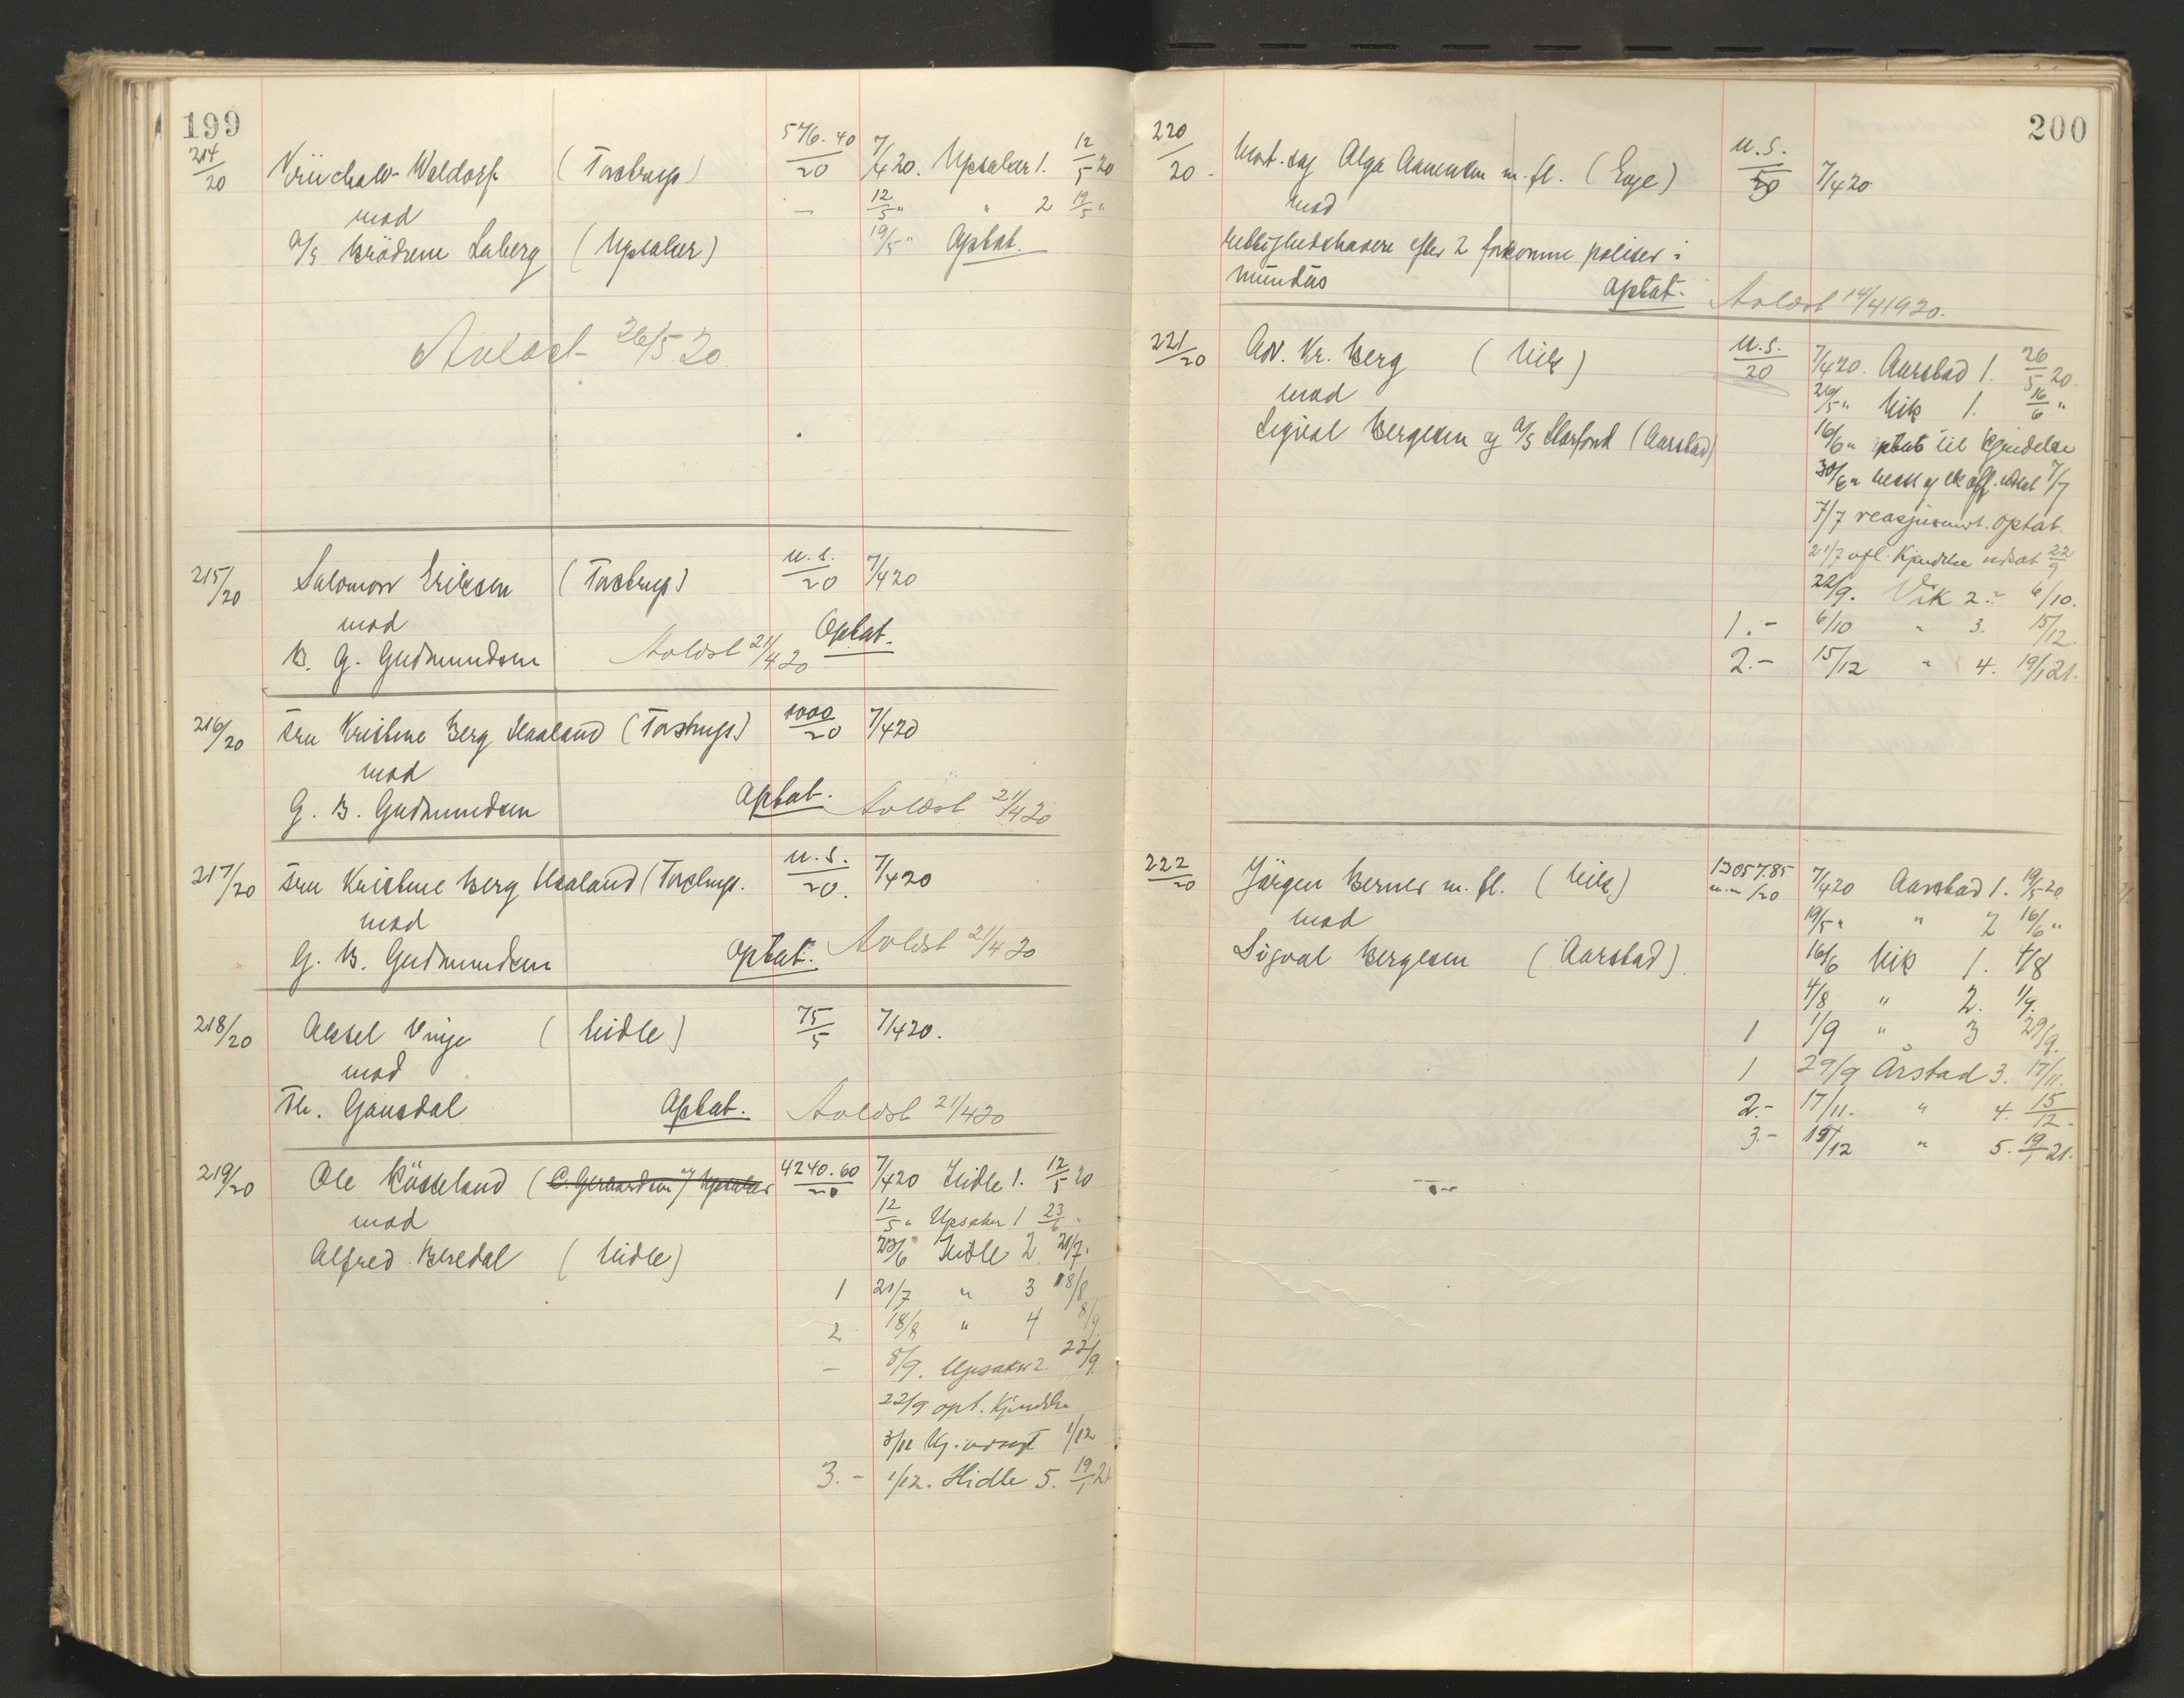 199
214/20 (Tastrup) 576.40/20 7/4 20. Upsaker 1. 12/5 20
mod — 12/5 " " 2 19/5 "
A/S Brödrene (Upsaker) 19/5 " Optat.
Avlæst 26/5 20
215/20 Salomon Eriksen (Tastrup) u.s./20 7/4 20
mod Optat.
B. G. Gudmundsen Avlæst 21/4 20
216/20 Fru Kristine Berg Haaland (Tastrup) 1000/20 7/4 20
mod
G. B. Gudmundsen Optat. Avlæst 21/4 20
217/20 Fru Kristine Berg Haaland (Tastrup. u.s./20. 7/4 20
mod
G. B. Gudmundsen Optat. Avlæst 21/4 20
218/20 Aksel Vinje (Hidle) 75/5 7/4 20.
mod
Th. Gausdal Optat. Avlæst 21/4 20
219/20 Ole (C. Gerhardsen Upsaker 4240.60/20 7/4 20 Hidle 1. 12/5 20
mod 12/5 " Upsaker 1 23/6 "
Alfred (Hidle) 23/6 " Hidle 2 21/7.
1 21/7 " 3 18/8
2 18/8 " 4 8/9
— 8/9. Upsaker 2 22/9
22/9 opt. Kjendelse
3/11 Kj. avsagt 1/12
3.- 1/12. Hidle 5. 19/1 21
200
220/20. Mort. sag Olga Aanensen m. fl. (Enge) u.s./50 7/4 20
mod
rettighedshavere efter 2 forkomne poliser i
Mundus Optat. Avlæst 14/4 1920.
221/20 Adv. Kr. Berg (Vik) u.s./20 7/4 20. Aarstad 1. 26/5 20.
mod 26/5 " Vik 1. 16/6 "
Sigval Bergesen og A/S (Aarstad) 16/6 " optat til Kjendelse
30/6 " utsat 7/7
7/7 reasjumert. Optat.
21/7 afl. Kjendelse utsat 22/9
22/9. Vik 2.- 6/10.
1.- 6/10 " 3. 15/12.
2.- 15/12 " 4. 19/1 21.
222/20 Jörgen Berner m. fl. (Vik) 13057.85 m.m/20 7/4 20 Aarstad 1. 19/5 20
mod 19/5 " " 2 16/6 "
Sigval Bergesen (Aarstad). 16/6 Vik 1. 4/8
4/8 " 2. 1/9.
1 1/9 " 3 29/9.
1 29/9 Årstad 3. 17/11.
2.- 17/11. " 4. 15/12.
3.- 15/12 " 5. 19/1 21.